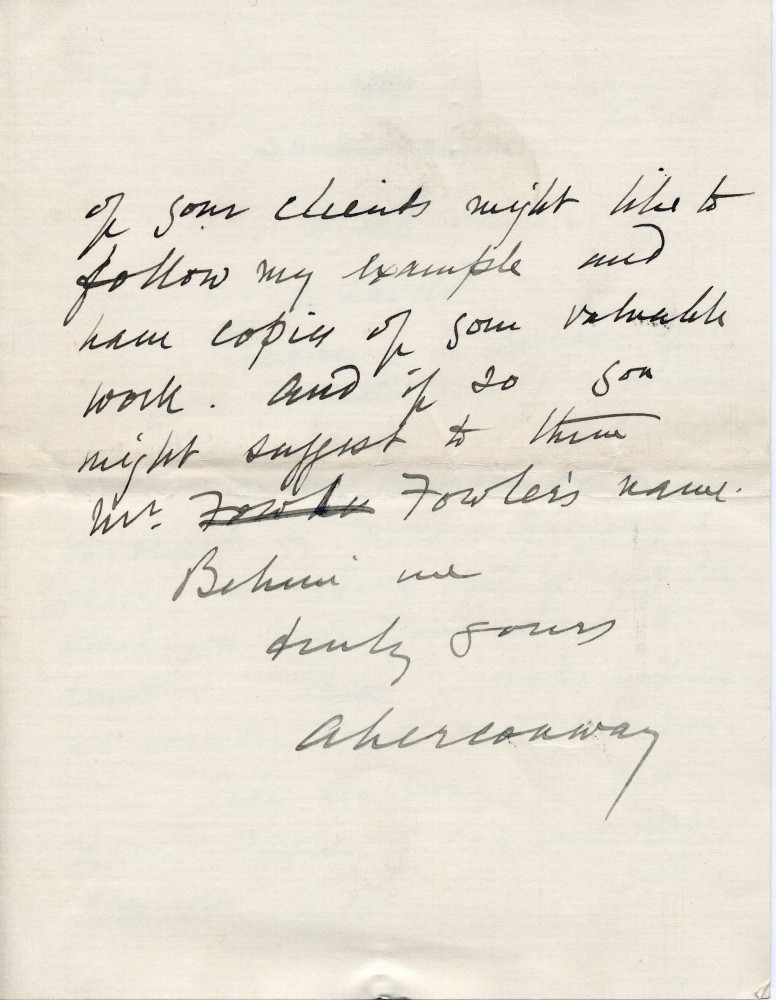 of your clients might like to
follow my example and
have copies of your valuable
work. And if so you
might suggest to them
Mr. Fowler Fowler's name.
Believe me
truly yours
Aberconway